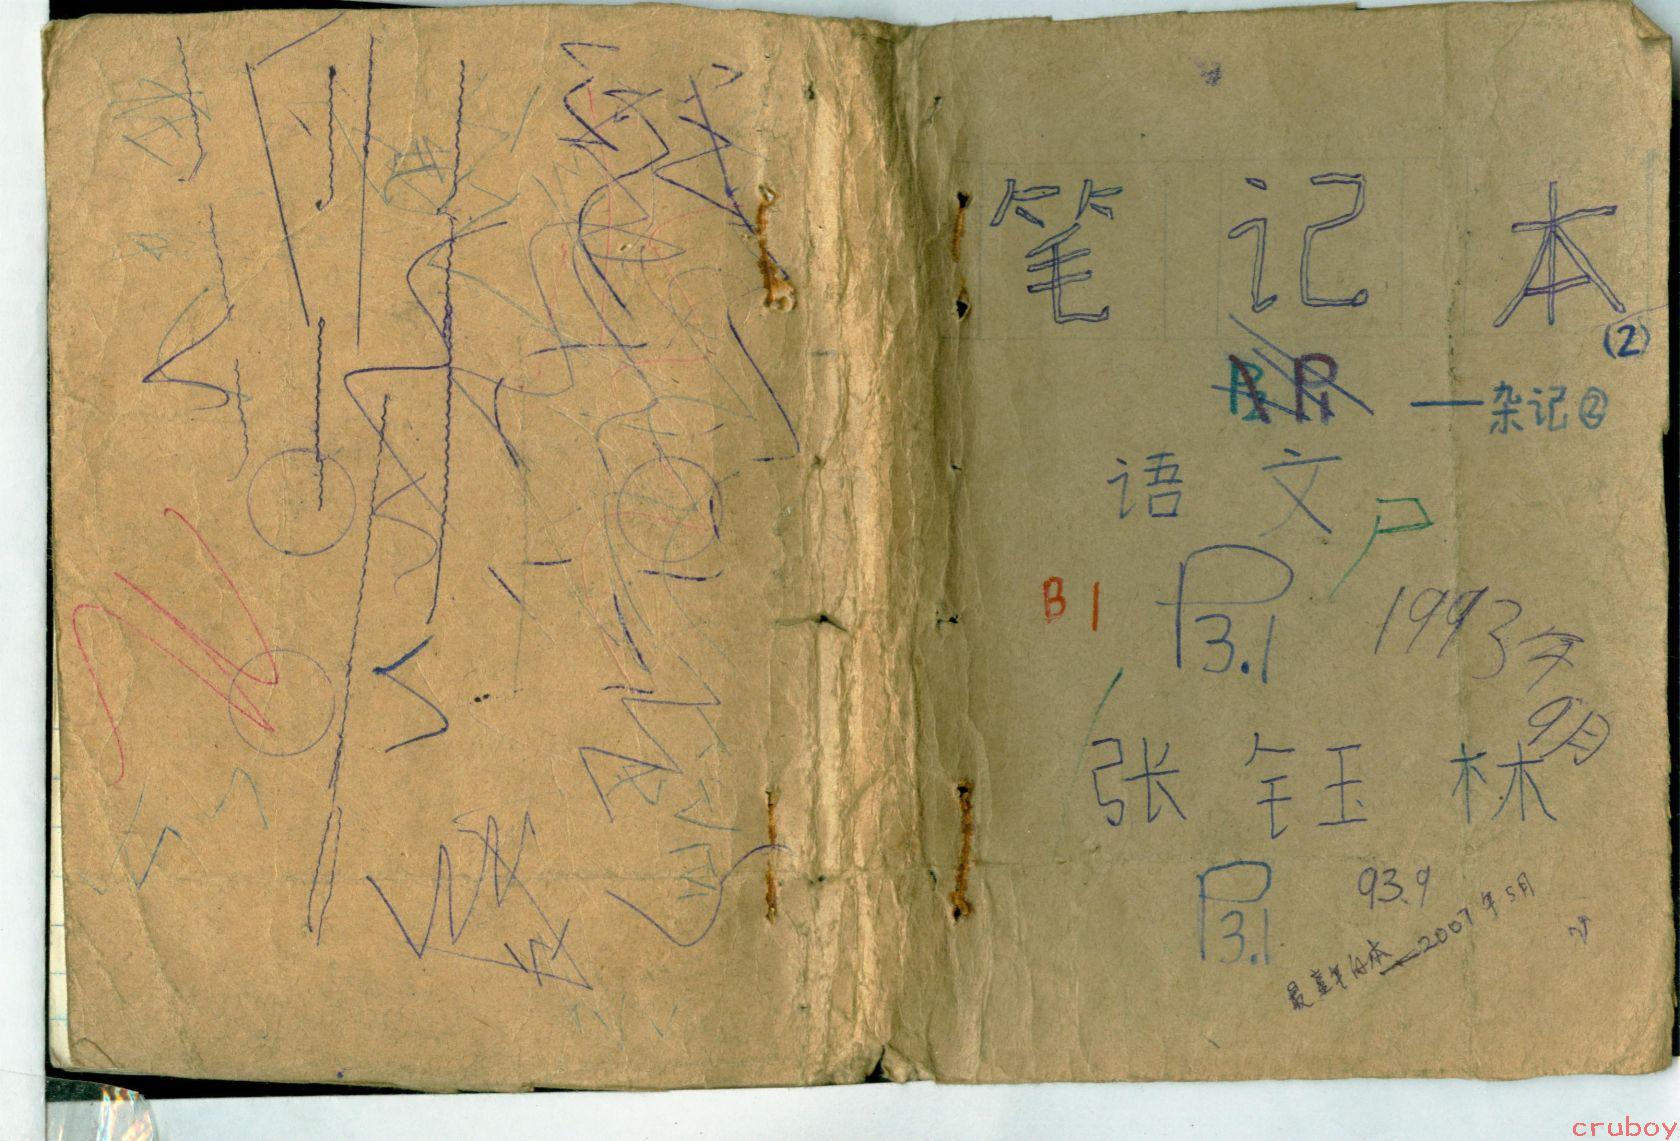 笔记本
(2)
—杂记②
语文
B1
P3.1
1993
9月
张钰林
P3.1
93.9
最童年的本—2007年5月
cruboy